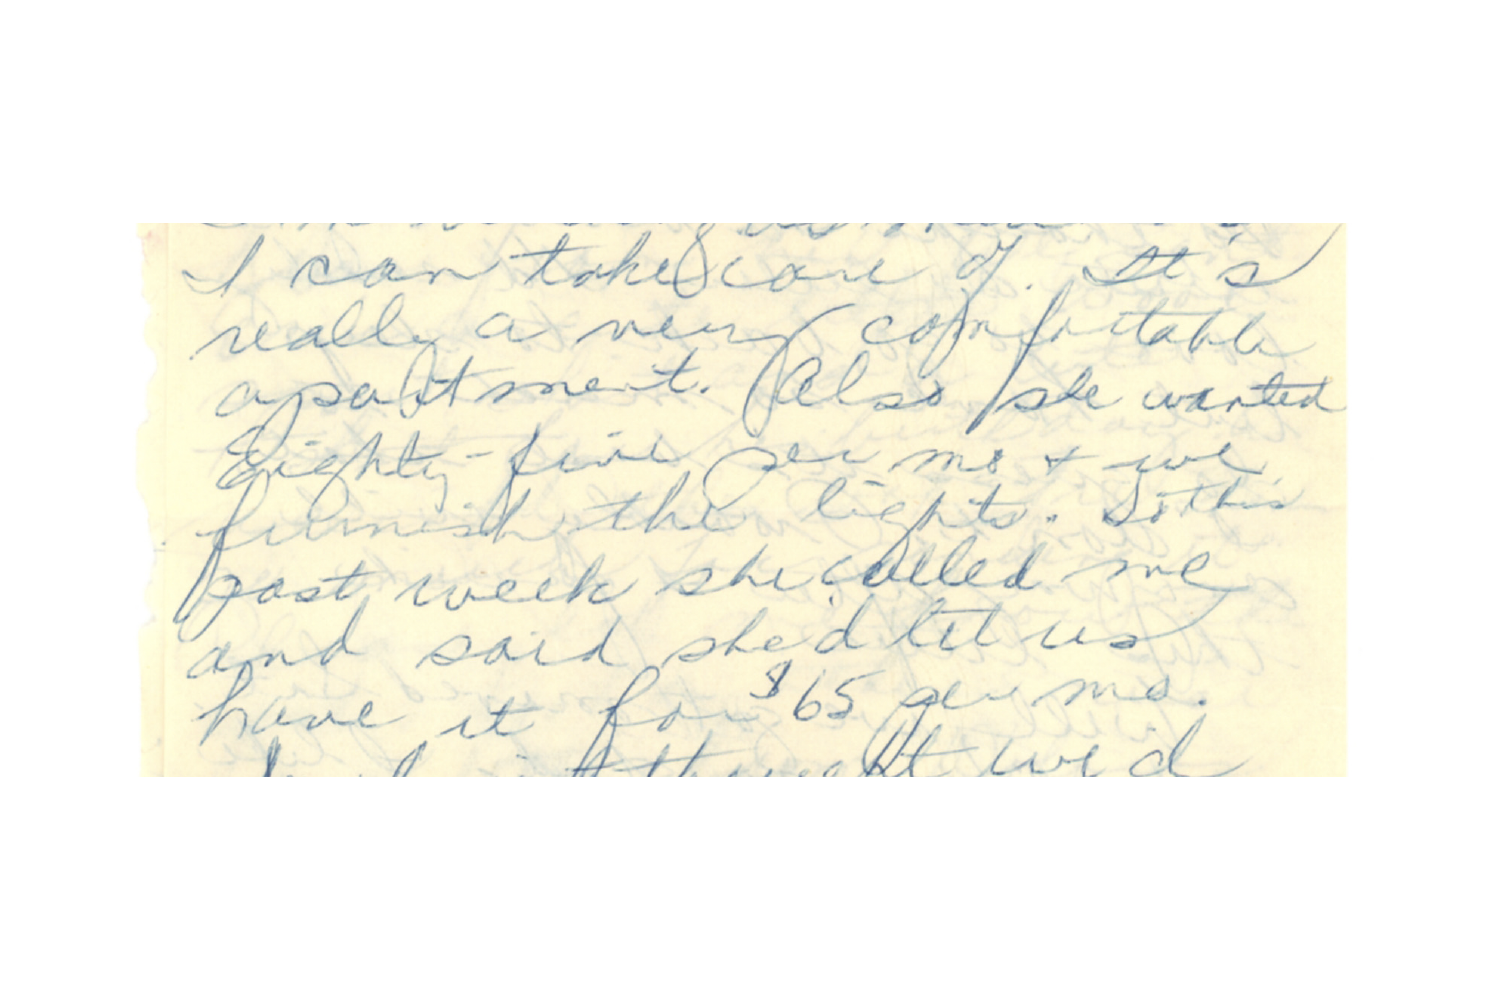 I can take care of. It's
really a very comfortable
apartment. Also she wanted
Eighty-five per mo + we
furnish the lights. So this
past week she called me
and said she'd let us
have it for $65 per mo.
thought we'd